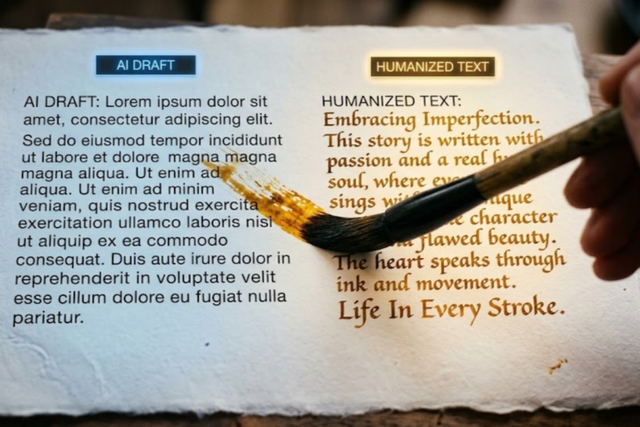 AI DRAFT
AI DRAFT: Lorem ipsum dolor sit
amet, consectetur adipiscing elit.
Sed do eiusmod tempor incididunt
ut labore et dolore magna magna
magna aliqua. Ut enim ad
aliqua. Ut enim ad minim
veniam, quis nostrud exercita
exercitation ullamco laboris nisi
ut aliquip ex ea commodo
consequat. Duis aute irure dolor in
reprehenderit in voluptate velit
esse cillum dolore eu fugiat nulla
pariatur.
HUMANIZED TEXT
HUMANIZED TEXT:
Embracing Imperfection.
This story is written with
passion and a real
soul, where
sings
character
flawed beauty.
The heart speaks through
ink and movement.
Life In Every Stroke.